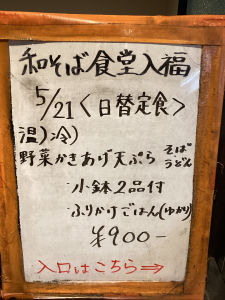 和そば食堂入福
5/21<日替定食>
温)冷)
野菜かきあげ天ぷら そば・うどん
小鉢2品付
ふりかけごはん(ゆかり)
¥900-
入口はこちら⇒